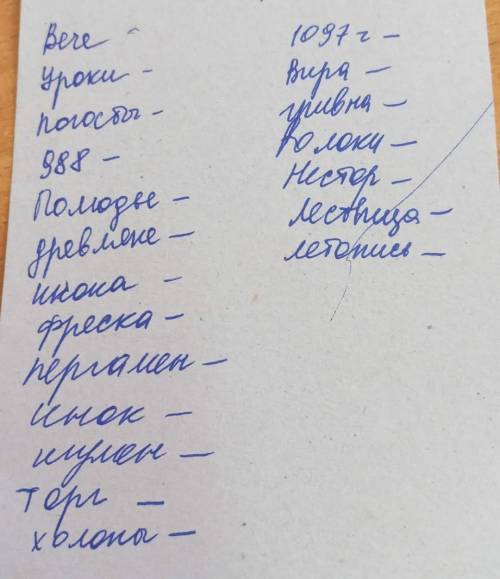 Вече -
Уроки -
Погосты -
988 -
Полюдье -
древляне -
икона -
фреска -
пергамен -
инок -
игумен -
Торг -
холопы -
1097 г -
Вира -
гривна -
Волоки -
Нестор -
Лествица -
летопись -